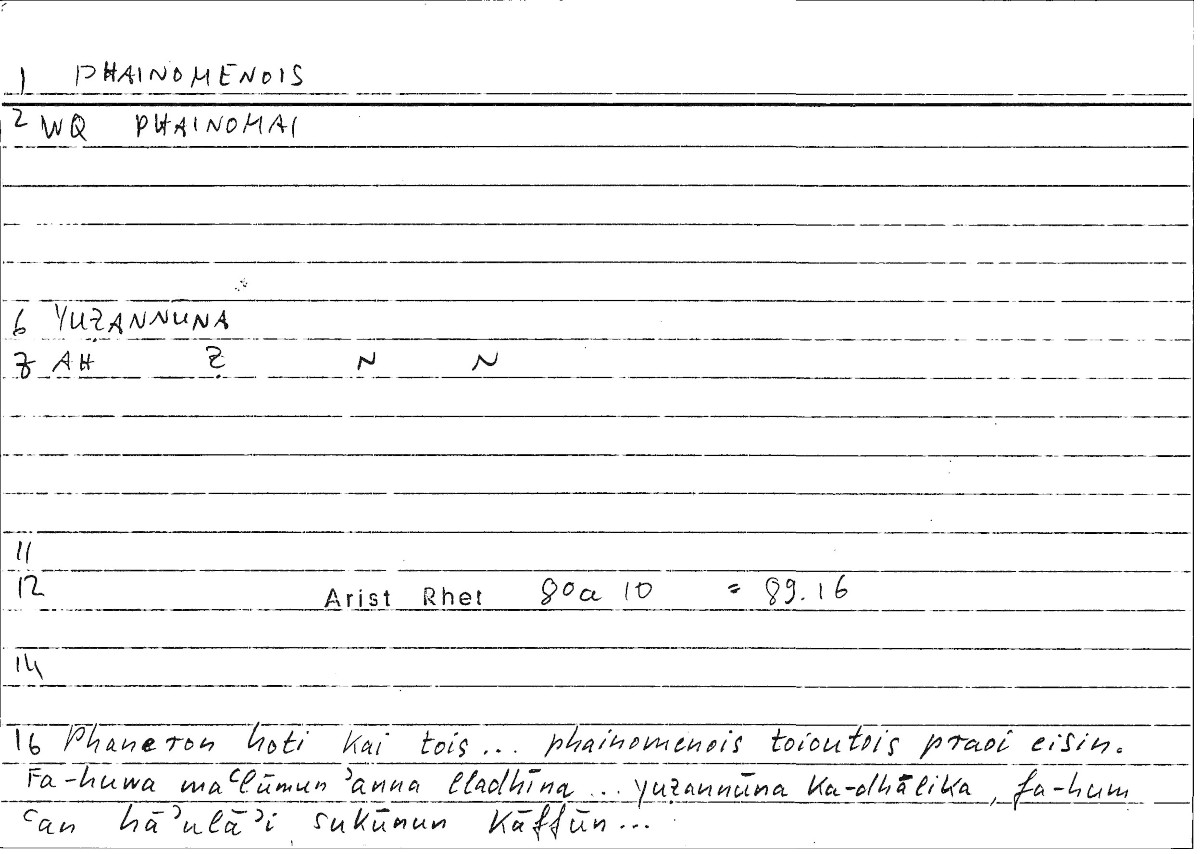 1 PHAINOMENOIS
2 WQ PHAINOMAI
6 YUẒANNUNA
7 AH Ẓ N N
11
12 Arist Rhet 80a 10 = 89.16
14
16 Phaneron hoti kai tois... phainomenois toioutois praoi eisin.
Fa-huwa maʿlūmun ʾanna lladhīna... yuẓannūna ka-dhālika, fa-hum
ʿan hāʾulāʾi sukūnun kāffūn...